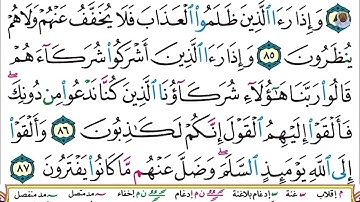 ٨٤ وَإِذَا رَءَا ٱلَّذِينَ ظَلَمُوا۟ ٱلْعَذَابَ فَلَا يُخَفَّفُ عَنْهُمْ وَلَا هُمْ
يُنظَرُونَ ٨٥ وَإِذَا رَءَا ٱلَّذِينَ أَشْرَكُوا۟ شُرَكَآءَهُمْ
قَالُوا۟ رَبَّنَا هَٰٓؤُلَآءِ شُرَكَآؤُنَا ٱلَّذِينَ كُنَّا نَدْعُوا۟ مِن دُونِكَ ۖ
فَأَلْقَوْا۟ إِلَيْهِمُ ٱلْقَوْلَ إِنَّكُمْ لَكَٰذِبُونَ ٨٦ وَأَلْقَوْا۟
إِلَى ٱللَّهِ يَوْمَئِذٍ ٱلسَّلَمَ ۖ وَضَلَّ عَنْهُم مَّا كَانُوا۟ يَفْتَرُونَ ٨٧
م إقلاب غنة إدغام بلاغنة ن م إدغام ن م إخفاء مد متصل مد منفصل